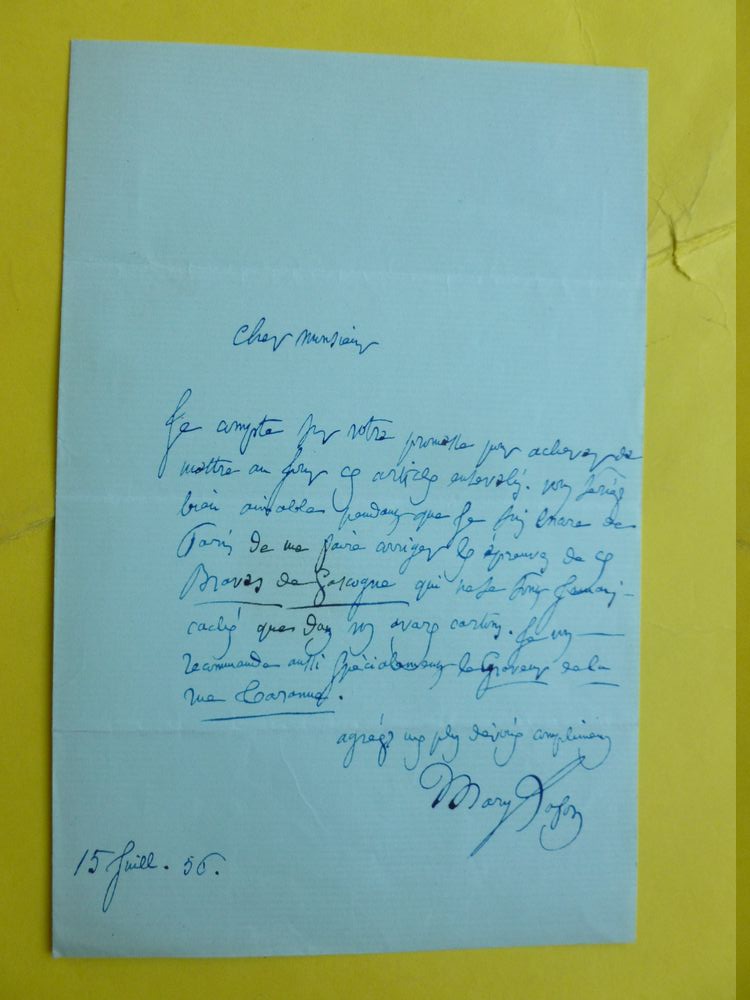 Cher monsieur
Je compte sur votre promesse pour achever de
mettre au jour ces articles ensevelis. vous seriez
bien aimable pendant que je suis encore à
Paris de me faire arriver les épreuves de ces
Braves de Gascogne qui ne se sont jamais
cachés que dans vos avares cartons. Je vous
recommande aussi spécialement le Graveur de la
rue
agréez mes plus dévoués compliments
Mary Lafon
15 Juill. 56.